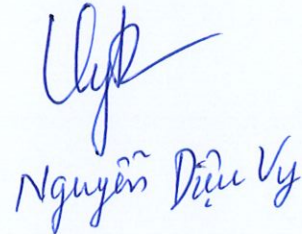 Nguyễn Diệu Vy